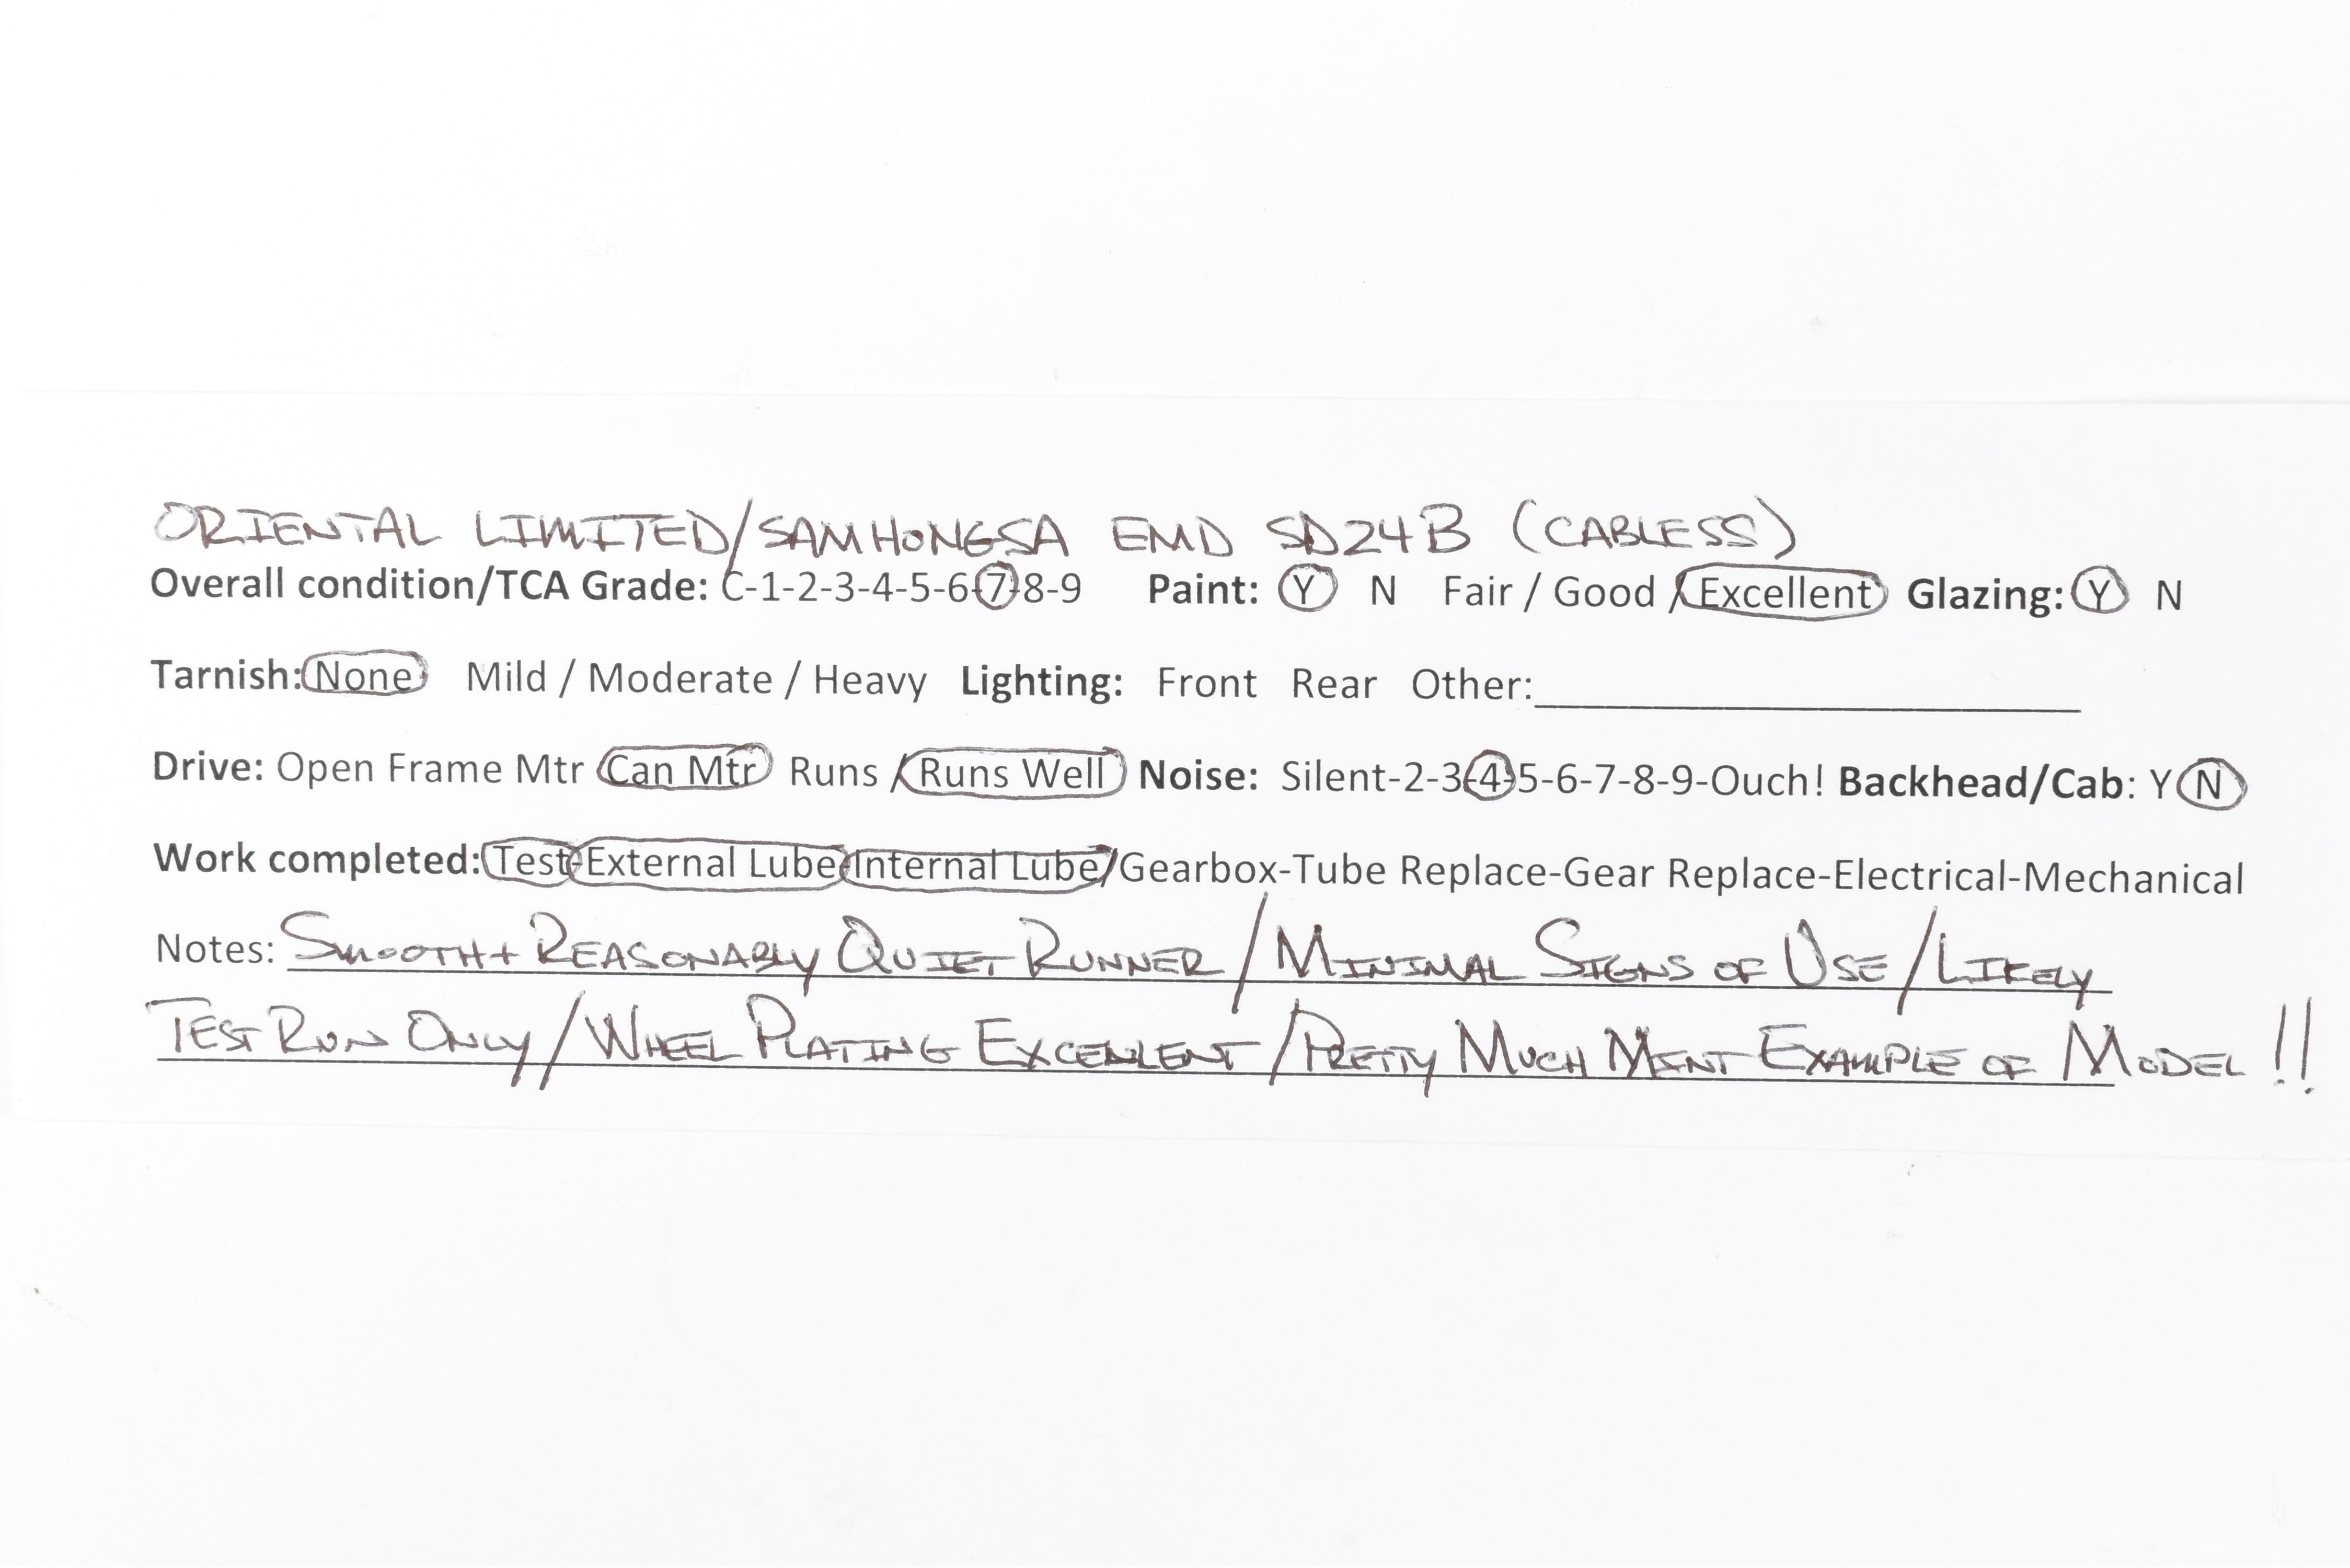 ORIENTAL LIMITED/SAMHONGSA EMD SD24B (CABLESS)
Overall condition/TCA Grade: C-1-2-3-4-5-6-7-8-9 Paint: Y N Fair / Good / Excellent Glazing: Y N
Tarnish: None Mild / Moderate / Heavy Lighting: Front Rear Other:
Drive: Open Frame Mtr Can Mtr Runs / Runs Well Noise: Silent-2-3-4-5-6-7-8-9-Ouch! Backhead/Cab: Y N
Work completed: Test-External Lube/Internal Lube/Gearbox-Tube Replace-Gear Replace-Electrical-Mechanical
Notes: SMOOTH + REASONABLY QUIET RUNNER / MINIMAL SIGNS OF USE / LIKELY
TEST RUN ONLY / WHEEL PLATING EXCELLENT / PRETTY MUCH MINT EXAMPLE OF MODEL!!